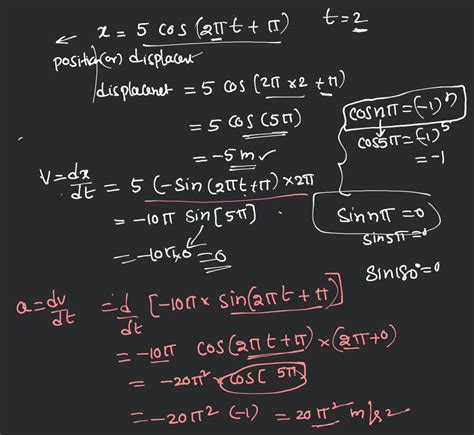 ← x = 5 cos (2πt + π) t = 2
position (or) displacent
displacenet = 5 cos (2π×2 + π)
= 5 cos (5π)
= -5 m
cosnπ = (-1)^n
cos5π = (-1)^5
= -1
V = dx/dt = 5 (-sin (2πt+π) × 2π
= -10π sin [5π]
= -10π×0 = 0
sin nπ = 0
sin5π = 0
sin180° = 0
a = dv/dt = d/dt [-10π × sin(2πt + π)]
= -10π cos(2πt+π) × (2π+0)
= -20π² × cos[5π]
= -20π² (-1) = 20π² m/s2